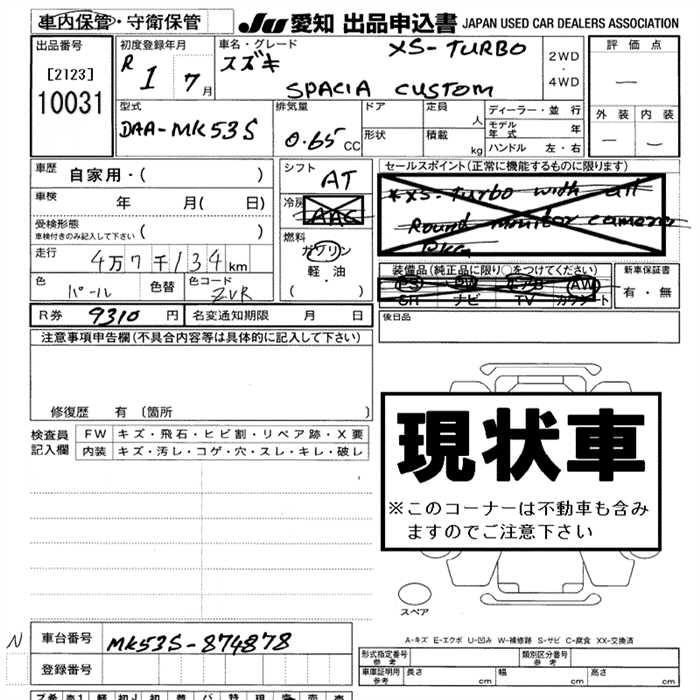 車内保管・守衛保管
JU 愛知 出品申込書 JAPAN USED CAR DEALERS ASSOCIATION
出品番号
[2123]
10031
初度登録年月
R 1 7月
車名・グレード
XS-TURBO
スズキ
SPACIA CUSTOM
2WD
・
4WD
評価点
—
外装 内装
— —
型式
DAA-MK53S
排気量
0.65 CC
ドア
形状
定員 人
積載 kg
ディーラー・並行
モデル年式 年
ハンドル 左・右
車歴 自家用・( )
車検 年 月( 日)
受検形態
車検付きのみ記入して下さい ( )
走行 4万7千134km
色 パール
色替
色コード ZVR
シフト AT
冷房 AAC
燃料
ガソリン
軽・油
( ・ )
セールスポイント(正常に機能するものに限ります)
*XS-Turbo with all
Round monitor camera
装備品(純正品に限り○をつけてください)
PS PW エアB AW
SR ナビ TV カワシート
新車保証書
有・無
R券 9310 円
名変通知期限 月 日
後日品
注意事項申告欄(不具合内容等は具体的に記入して下さい)
修復歴 有〔箇所 〕
検査員記入欄
FW キズ・飛石・ヒビ割・リペア跡・X要
内装 キズ・汚レ・コゲ・穴・スレ・キレ・破レ
現状車
※このコーナーは不動車も含み
ますのでご注意下さい
スペア
N
車台番号 MK53S-874878
登録番号
A-キズ E-エクボ U-凹み W-補修跡 S-サビ C-腐食 XX-交換済
形式指定番号 参考
類別区分番号 参考
車庫証明用 参考
長さ cm
幅 cm
高さ cm